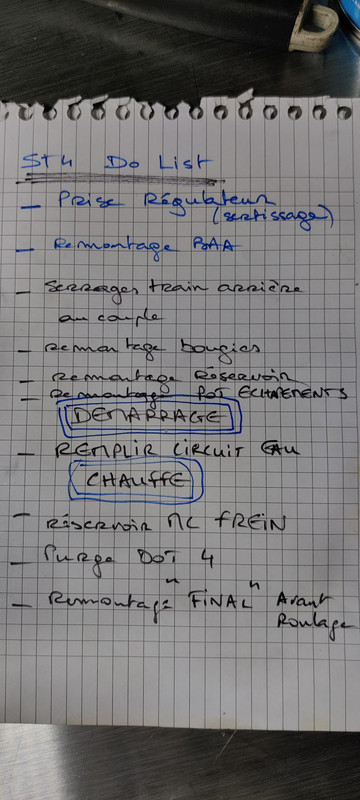 ST4 Do List
_ Prise Régulateur
(sertissage)
_ Remontage BAA
_ Serrages train arrière
au couple
_ remontage bougies
_ remontage Réservoir
_ Remontage POT ECHAPEMENTS
DEMARRAGE
_ REMPLIR CIRCUIT EAU
CHAUFFE
_ réservoir MC FREIN
_ Purge DOT 4
_ Remontage "FINAL" Avant
Roulage